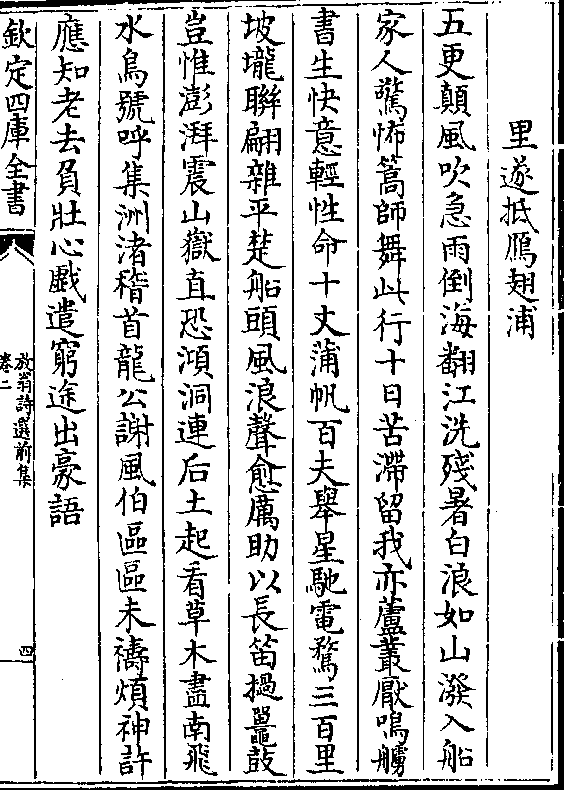 里遂抵鴈翅浦
五更顛風吹急雨倒海翻江洗殘暑白浪如山潑入船
家人驚怖篙師舞此行十日苦滯留我亦蘆叢厭鳴艣
書生快意輕性命十丈蒲帆百夫舉星馳電騖三百里
坡壠聯翩雜平楚船頭風浪聲愈厲助以長笛撾鼉鼓
豈惟澎湃震山嶽直恐澒洞連后土起看草木盡南飛
水鳥號呼集洲渚稽首龍公謝風伯區區未禱煩神許
應知老去負壯心戲遣窮途出豪語
欽定四庫全書
放翁詩選前集
卷二
四